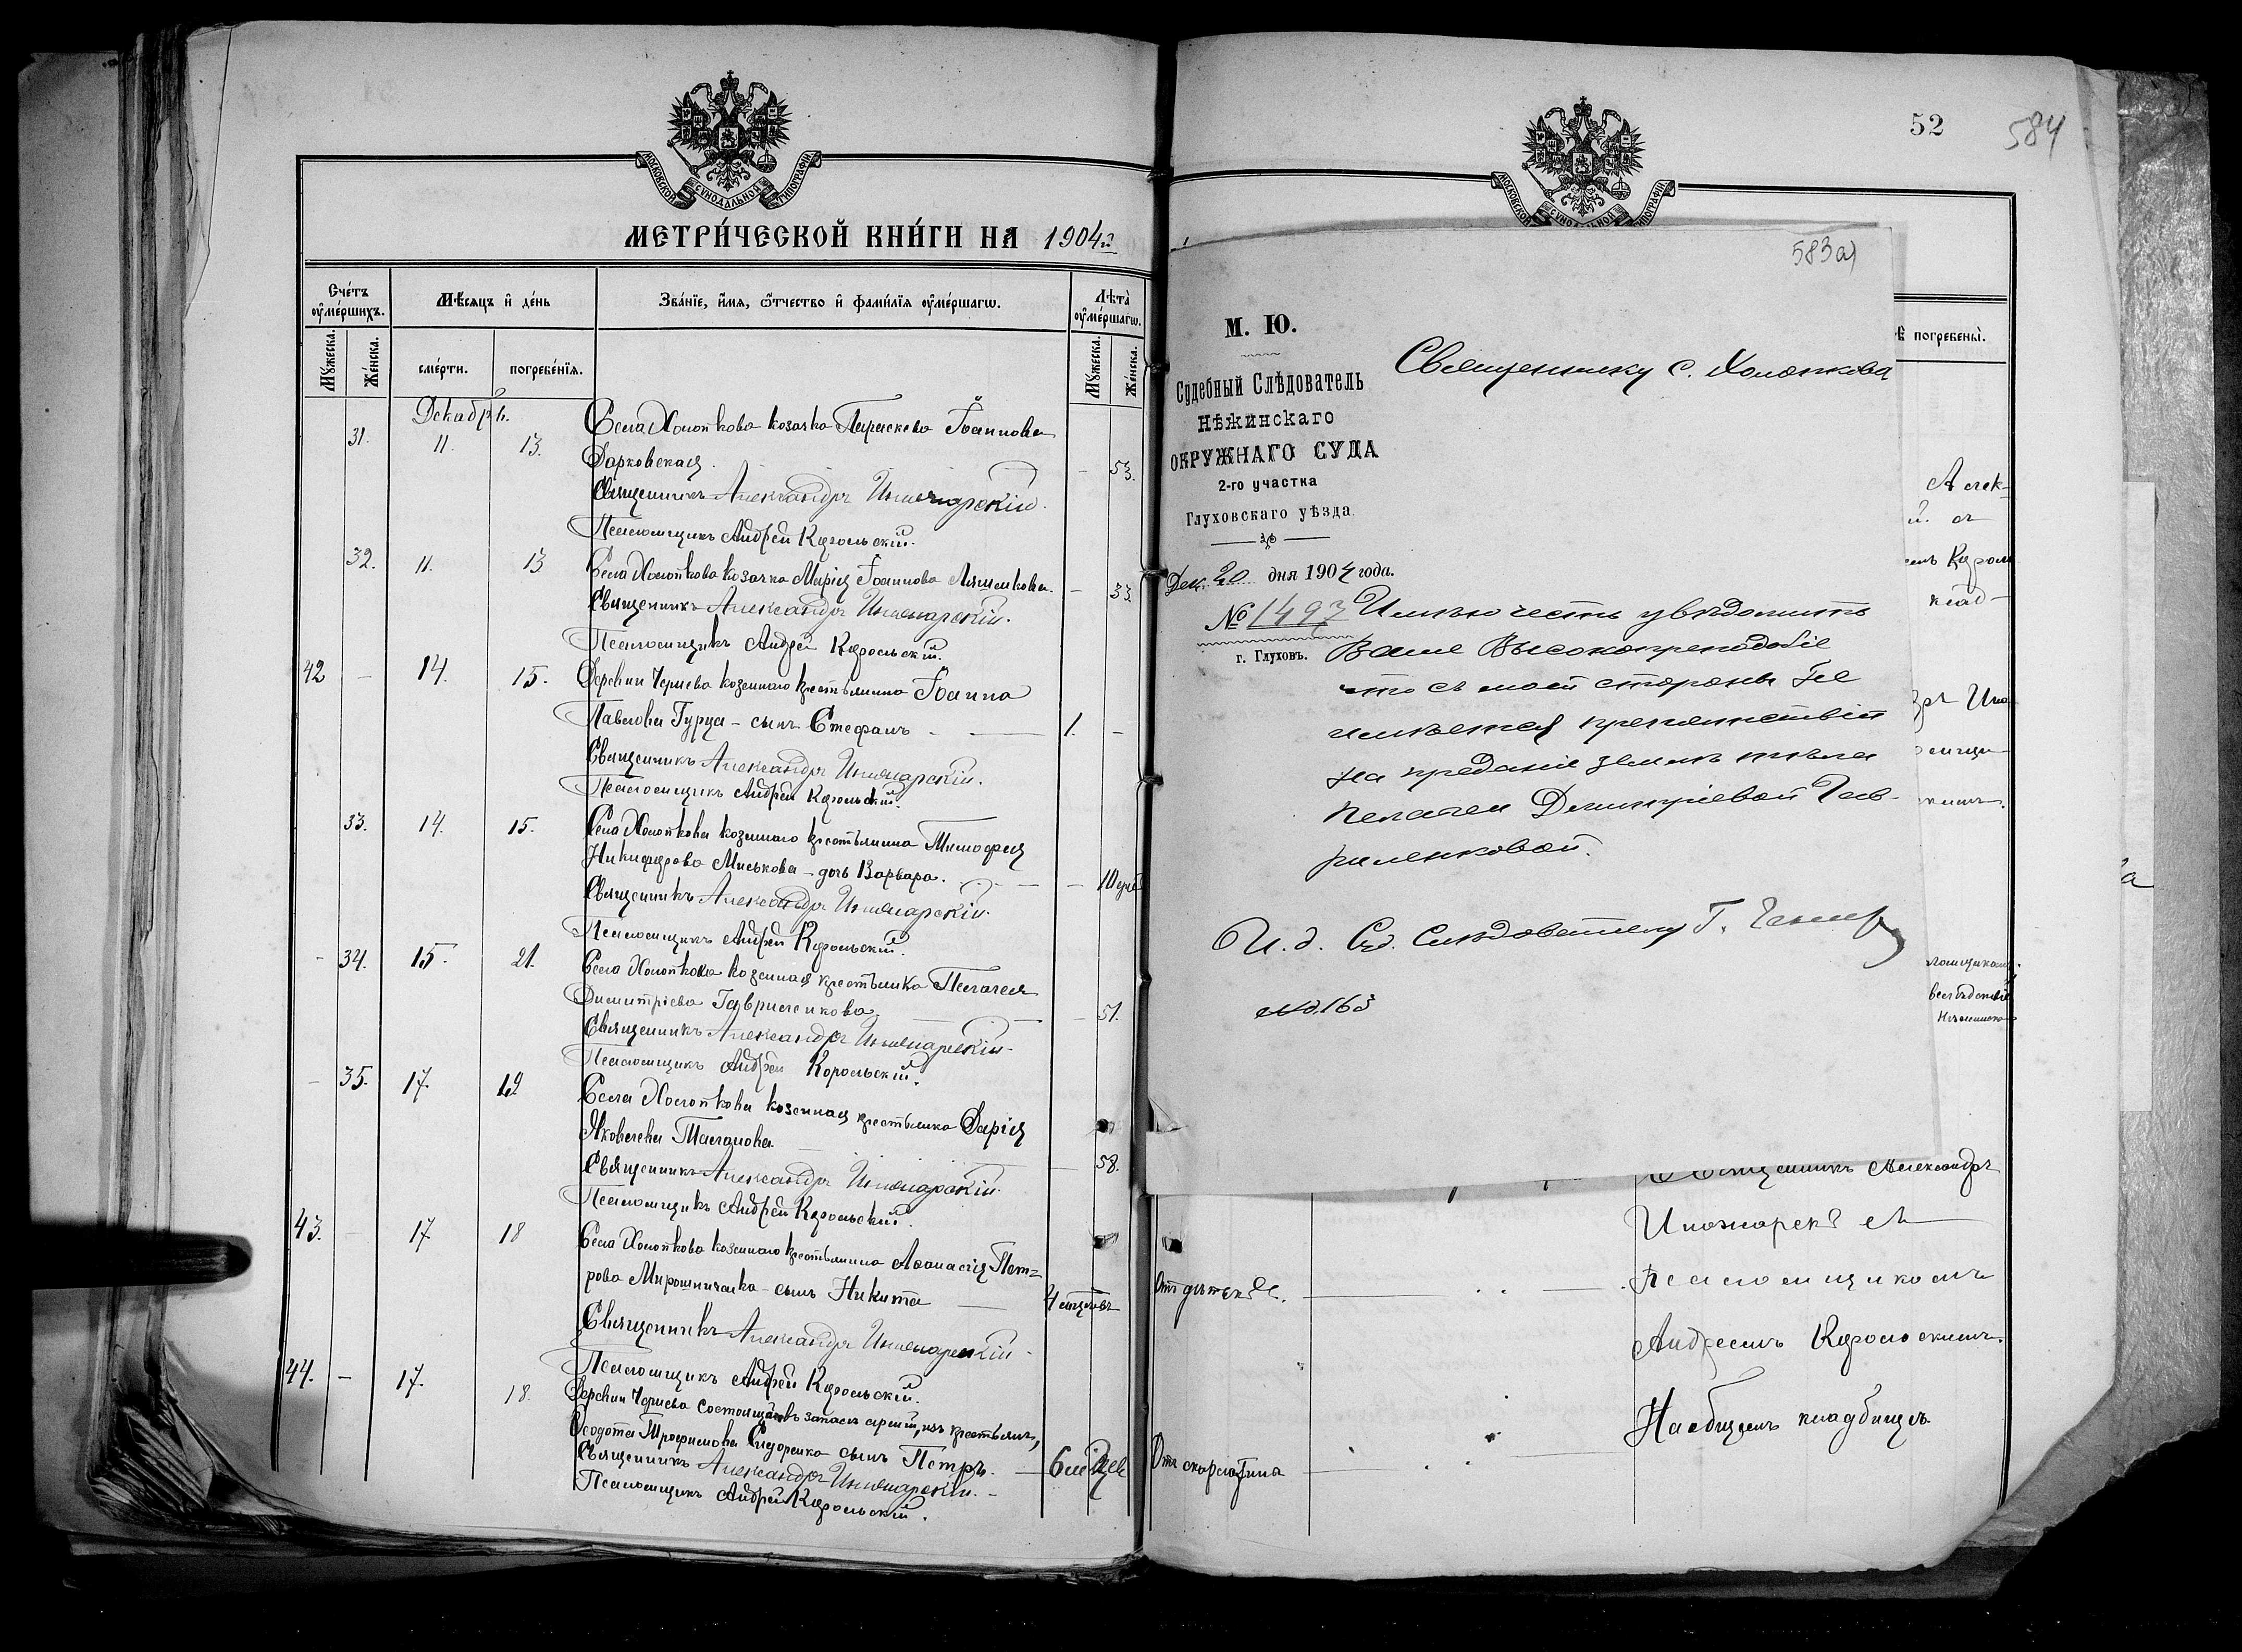 МОСКОВСКОЙ СУНОДАЛЬНОЙ ТИПОГРАФІИ
МЕТРИ́ЧЕСКОЙ КНИ́ГИ НА 1904 г.
Счéтъ ᲂу҆мéршихъ.
Мѣ́сяцъ и҆ дéнь
Звáнїе, и҆́мя, ѻ҆́тчество и҆ фамѝлїя ᲂу҆мéршагѡ.
Лѣ́та ᲂу҆мéршагѡ.
Мꙋ́жеска.
Жéнска.
смéрти.
погребéнїя.
Мꙋ́жеска.
Жéнска.
Декабрь.
31. 11. 13. Села Холопкова козачка Параскева Іоаннова
Дарковская. - 53.
Священникъ Александръ Иножарскій.
Псаломщикъ Андрей Корольскій.
32. 11. 13 Села Холопкова козачка Марія Іоаннова Ляшенкова. - 33.
Священникъ Александръ Иножарскій.
Псаломщикъ Андрей Корольскій.
42 - 14. 15. Деревни Чернева козеннаго крестьянина Іоанна
Павлова Гурца - сынъ Стефанъ - 1. -
Священникъ Александръ Иножарскій.
Псаломщикъ Андрей Корольскій.
33. 14. 15. Села Холопкова козеннаго крестьянина Тимофея
Никифорова Миськова - дочь Варвара. - 10 дней
Священникъ Александръ Иножарскій.
Псаломщикъ Андрей Корольскій.
- 34. 15. 21. Села Холопкова козенная крестьянка Пелагея
Димитріева Гавриленкова - 51.
Священникъ Александръ Иножарскій.
Псаломщикъ Андрей Корольскій.
- 35. 17. 19 Села Холопкова козенная крестьянка Дарія
Яковлева
Священникъ Александръ Иножарскій. - 58.
Псаломщикъ Андрей Корольскій.
43. - 17. 18 Села Холопкова козеннаго крестьянина Аѳанасія Пет=
рова Мирошниченка - сынъ Никита - 4 месяцовъ
Священникъ Александръ Иножарскій
Псаломщикъ Андрей Корольскій.
44. - 17. 18. Деревни Чернева состоящаго въ запасѣ арміи, изъ крестьянъ,
Ѳеодота Трофимова Сидоренка сынъ Петръ. - 6
Священникъ Александръ Иножарскій. -
Псаломщикъ Андрей Корольскій.
52
584
МОСКОВСКОЙ СУНОДАЛЬНОЙ ТИПОГРАФІИ
погребены̀.
583а)
М. Ю.
Судебный Слѣдователь
Нѣжинскаго
ОКРУЖНАГО СУДА
2-го участка
Глуховскаго уѣзда.
Дек. 20 дня 1904 года.
№ 1493
г. Глуховъ.
Священнику с. Холопкова
Имѣю честь увѣдомить
Ваше Высокопреподобіе
что съ моей стороны не
имѣется препятствій
на преданіе землѣ тѣла
Пелагеи Димитріевой Гав-
риленковой.
И. д. Суд. Слѣдователя Г.
163
Алек-
Корол
клад-
Священникъ Александръ
Иножарскій съ
псаломщикомъ
Андреемъ Корольскимъ.
На общемъ кладбищѣ.
Отъ скарлатина